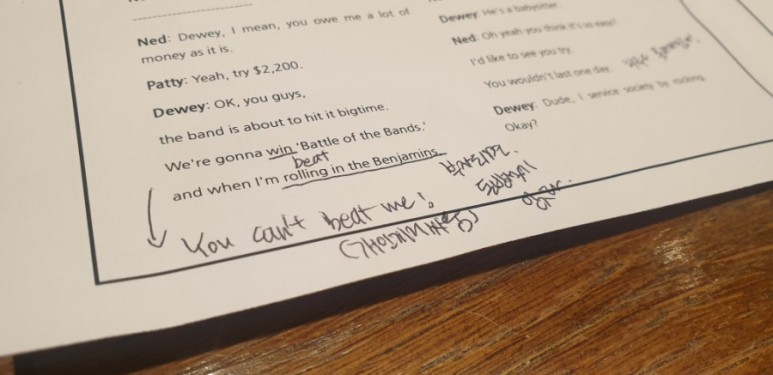 Ned: Dewey, I mean, you owe me a lot of
money as it is.
Patty: Yeah, try $2,200.
Dewey: OK, you guys,
the band is about to hit it bigtime.
We're gonna win 'Battle of the Bands.'
beat
and when I'm rolling in the Benjamins
You can't beat me!
Dewey: He's a babysitter.
Ned: Oh yeah you think it's so easy?
I'd like to see you try.
You wouldn't last one day.
Dewey: Dude, I service society by rocking.
Okay?